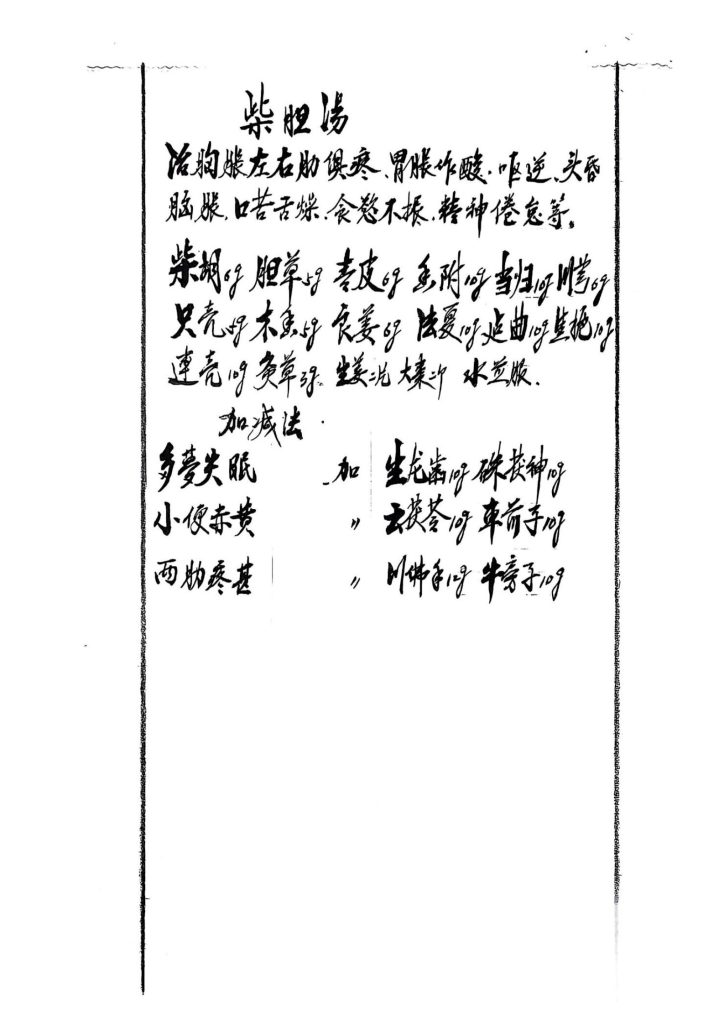 柴胆湯
治胸胀左右肋俱疼、胃胀作酸、呕逆、头昏
脑胀、口苦舌燥、食慾不振、精神倦怠等。
柴胡6g 胆草5g 青皮6g 香附10g 当归10g 川芎6g
只壳5g 木香5g 良姜6g 法夏10g 占曲10g 焦栀10g
連壳10g 灸草3g 生姜三片 大棗三个 水煎服.
加减法
多夢失眠 加 生龙齒10g 硃茯神10g
小便赤黄 〃 云茯苓10g 車前子10g
两肋疼甚 〃 川佛手12g 牛旁子10g